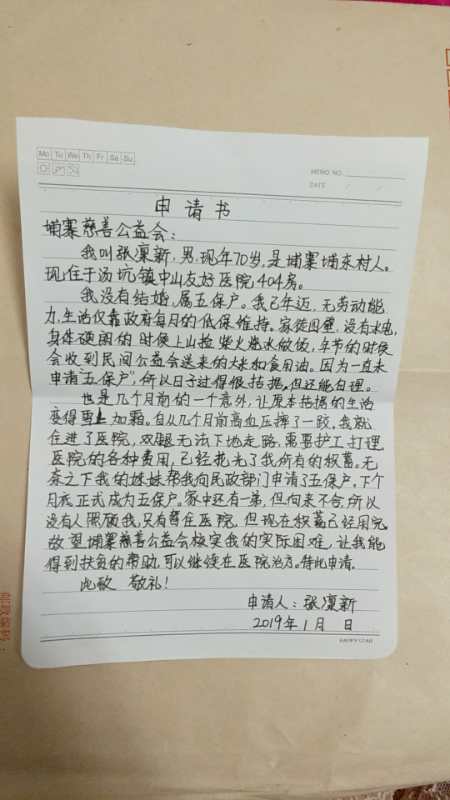 Mo Tu We Th Fr Sa Su
MEMO NO.
DATE / /
申请书
埔寨慈善公益会：
我叫张凛新，男，现年70岁，是埔寨埔东村人。
现住于汤坑镇中山友好医院404房。
我没有结婚，属五保户。我已年迈，无劳动能
力，生活仅靠政府每月的低保维持。家徒四壁，没有水电，
身体硬朗的时候上山捡柴火烧水做饭，年节的时候
会收到民间公益会送来的大米和食用油。因为一直未
申请“五保户”，所以日子过得很拮据，但还能自理。
也是几个月前的一个意外，让原本拮据的生活
变得雪上加霜。自从几个月前高血压摔了一跤，我就
住进了医院，双腿无法下地走路，需要护工打理
医院的各种费用，已经花光了我所有的积蓄。无
奈之下我的妹妹帮我向民政部门申请了五保户，下个
月底正式成为五保户。家中还有一弟，但向来不合，所以
没有人照顾我，只有暂住医院，但现在积蓄已经用完
故望埔寨慈善公益会核实我的实际困难，让我能
得到扶贫的帮助，可以继续在医院治疗。特此申请。
此致 敬礼！
申请人：张凛新
2019年1月 日
邮政编码：